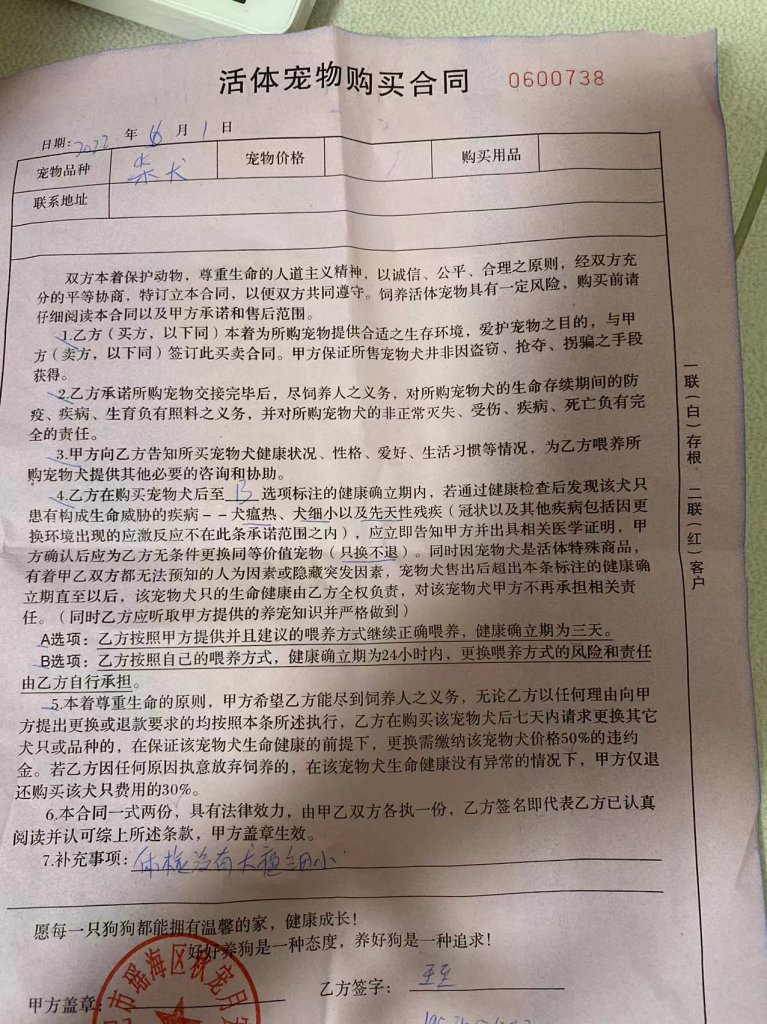 活体宠物购买合同 0600738
日期:2022 年 6 月 1 日
宠物品种 柴犬 宠物价格 购买用品
联系地址
双方本着保护动物，尊重生命的人道主义精神，以诚信、公平、合理之原则，经双方充
分的平等协商，特订立本合同，以便双方共同遵守。饲养活体宠物具有一定风险，购买前请
仔细阅读本合同以及甲方承诺和售后范围。
1.乙方（买方，以下同）本着为所购宠物提供合适之生存环境，爱护宠物之目的，与甲
方（卖方，以下同）签订此买卖合同。甲方保证所售宠物犬井非因盗窃、抢夺、拐骗之手段
获得。
2.乙方承诺所购宠物交接完毕后，尽饲养人之义务，对所购宠物犬的生命存续期间的防
疫、疾病、生育负有照料之义务，并对所购宠物犬的非正常灭失、受伤、疾病、死亡负有完
全的责任。
3.甲方向乙方告知所买宠物犬健康状况、性格、爱好、生活习惯等情况，为乙方喂养所
购宠物犬提供其他必要的咨询和协助。
4.乙方在购买宠物犬后至 B 选项标注的健康确立期内，若通过健康检查后发现该犬只
患有构成生命威胁的疾病--犬瘟热、犬细小以及先天性残疾（冠状以及其他疾病包括因更
换环境出现的应激反应不在此条承诺范围之内），应立即告知甲方并出具相关医学证明，甲
方确认后应为乙方无条件更换同等价值宠物（只换不退）。同时因宠物犬是活体特殊商品，
有着甲乙双方都无法预知的人为因素或隐藏突发因素，宠物犬售出后超出本条标注的健康确
立期直至以后，该宠物犬只的生命健康由乙方全权负责，对该宠物犬甲方不再承担相关责
任。（同时乙方应听取甲方提供的养宠知识并严格做到）
A选项：乙方按照甲方提供并且建议的喂养方式继续正确喂养，健康确立期为三天。
B选项：乙方按照自己的喂养方式，健康确立期为24小时内，更换喂养方式的风险和责任
由乙方自行承担。
5.本着尊重生命的原则，甲方希望乙方能尽到饲养人之义务，无论乙方以任何理由向甲
方提出更换或退款要求的均按照本条所述执行，乙方在购买该宠物犬后七天内请求更换其它
犬只或品种的，在保证该宠物犬生命健康的前提下，更换需缴纳该宠物犬价格50%的违约
金。若乙方因任何原因执意放弃饲养的，在该宠物犬生命健康没有异常的情况下，甲方仅退
还购买该犬只费用的30%。
6.本合同一式两份，具有法律效力，由甲乙双方各执一份，乙方签名即代表乙方已认真
阅读并认可综上所述条款，甲方盖章生效。
7.补充事项：体检没有犬瘟细小
愿每一只狗狗都能拥有温馨的家，健康成长！
好好养狗是一种态度，养好狗是一种追求！
甲方盖章： 乙方签字：
市瑶海区秋宠月
一联（白）存根 二联（红）客户